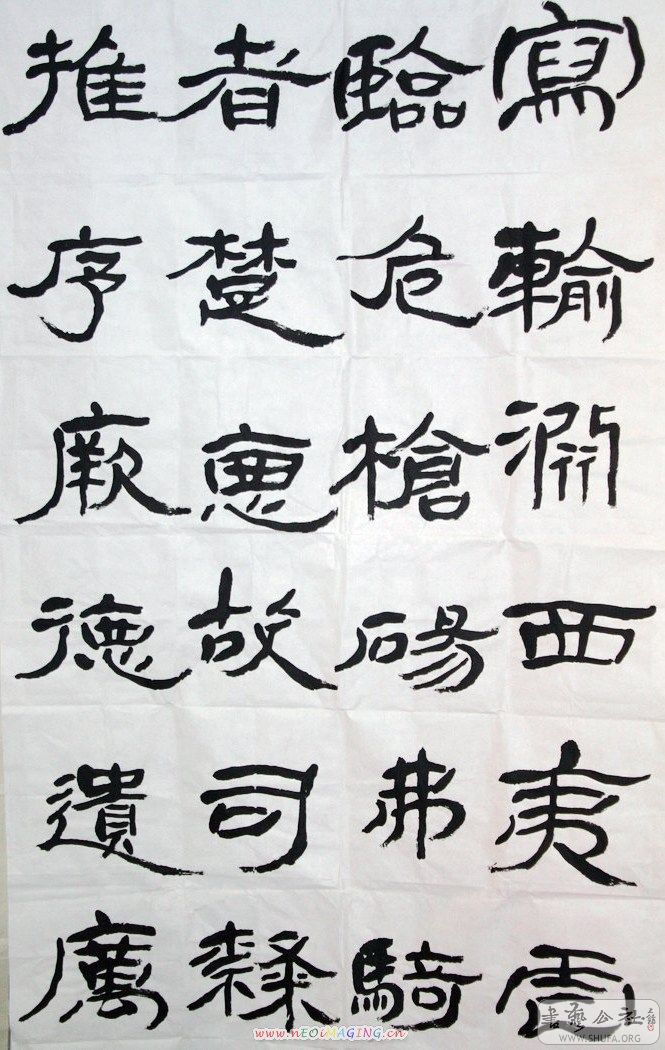 寫輸淵西夷虐
臨危槍碭弗騎
者楚惠故司隸
推序厥德遺厲
www.nEOiMAGiNG.cn
書藝公社
WWW.SHUFA.ORG